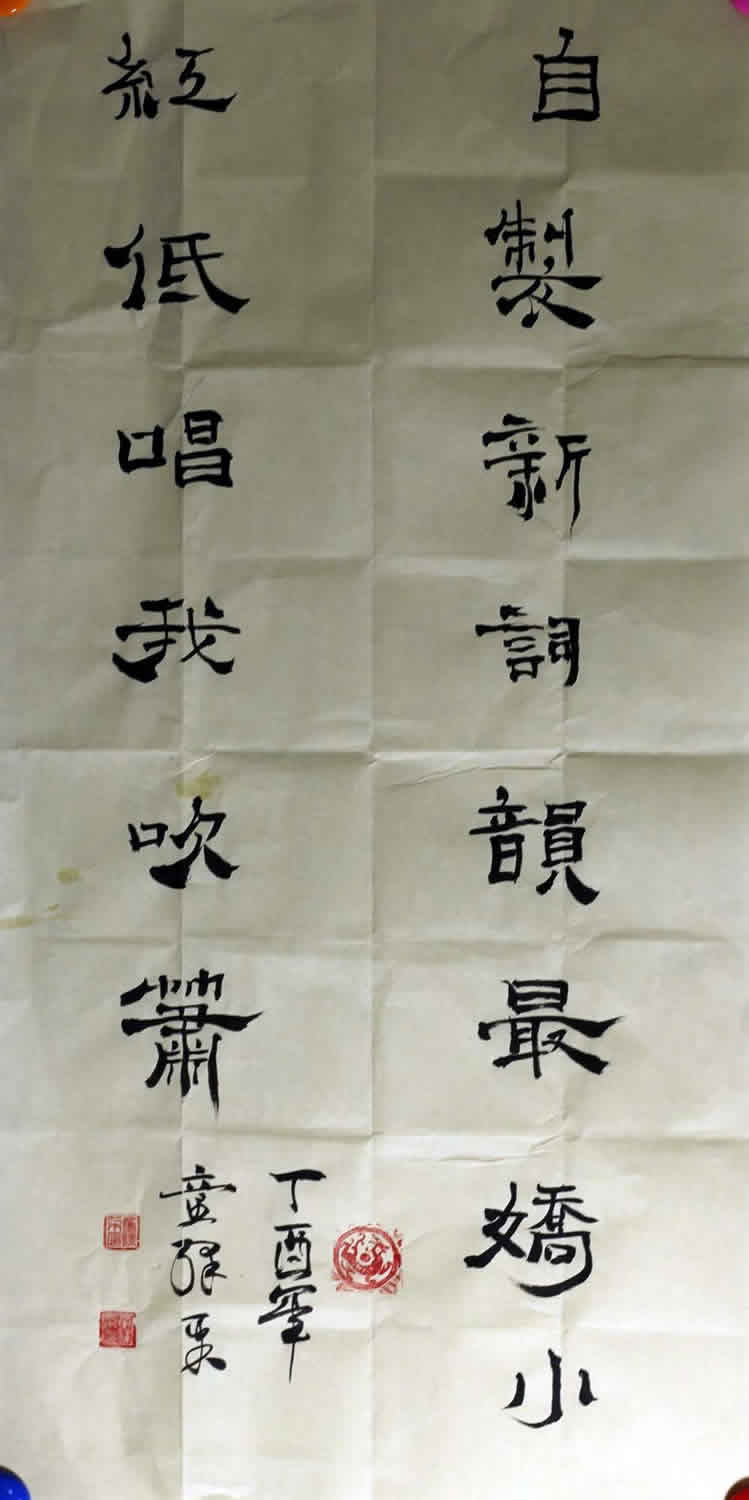 自製新詞韻最嬌小
紅低唱我吹簫
丁酉